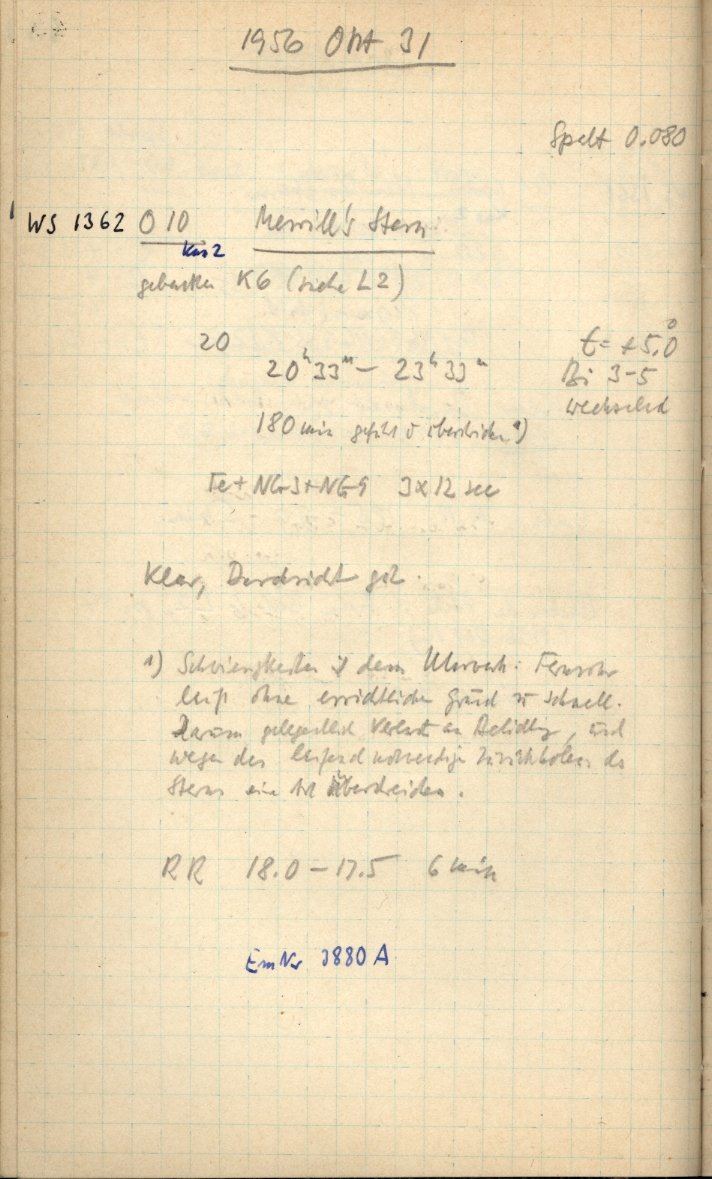 1956 Okt 31
Spalt 0.080
WS 1362 O 10 Merrill's Stern
Kas 2
gebacken K6 (siehe L2)
20
t = +5.0°
20ʰ33ᵐ – 23ʰ33ᵐ
Bi 3-5
wechselnd
180 min geführt
Fe + NG3 + NG9 3x12 sec
Klar, Durchsicht gut.
1) Schwierigkeiten mit dem Uhrwerk: Fernrohr
läuft ohne ersichtlichen Grund zu schnell.
Darum gelegentlich Verlust an Belichtg, und
wegen des laufend notwendigen Zurückholens des
Sterns eine Art Überschreiden.
RR 18.0 – 17.5 6 min
Em Nr 3880 A